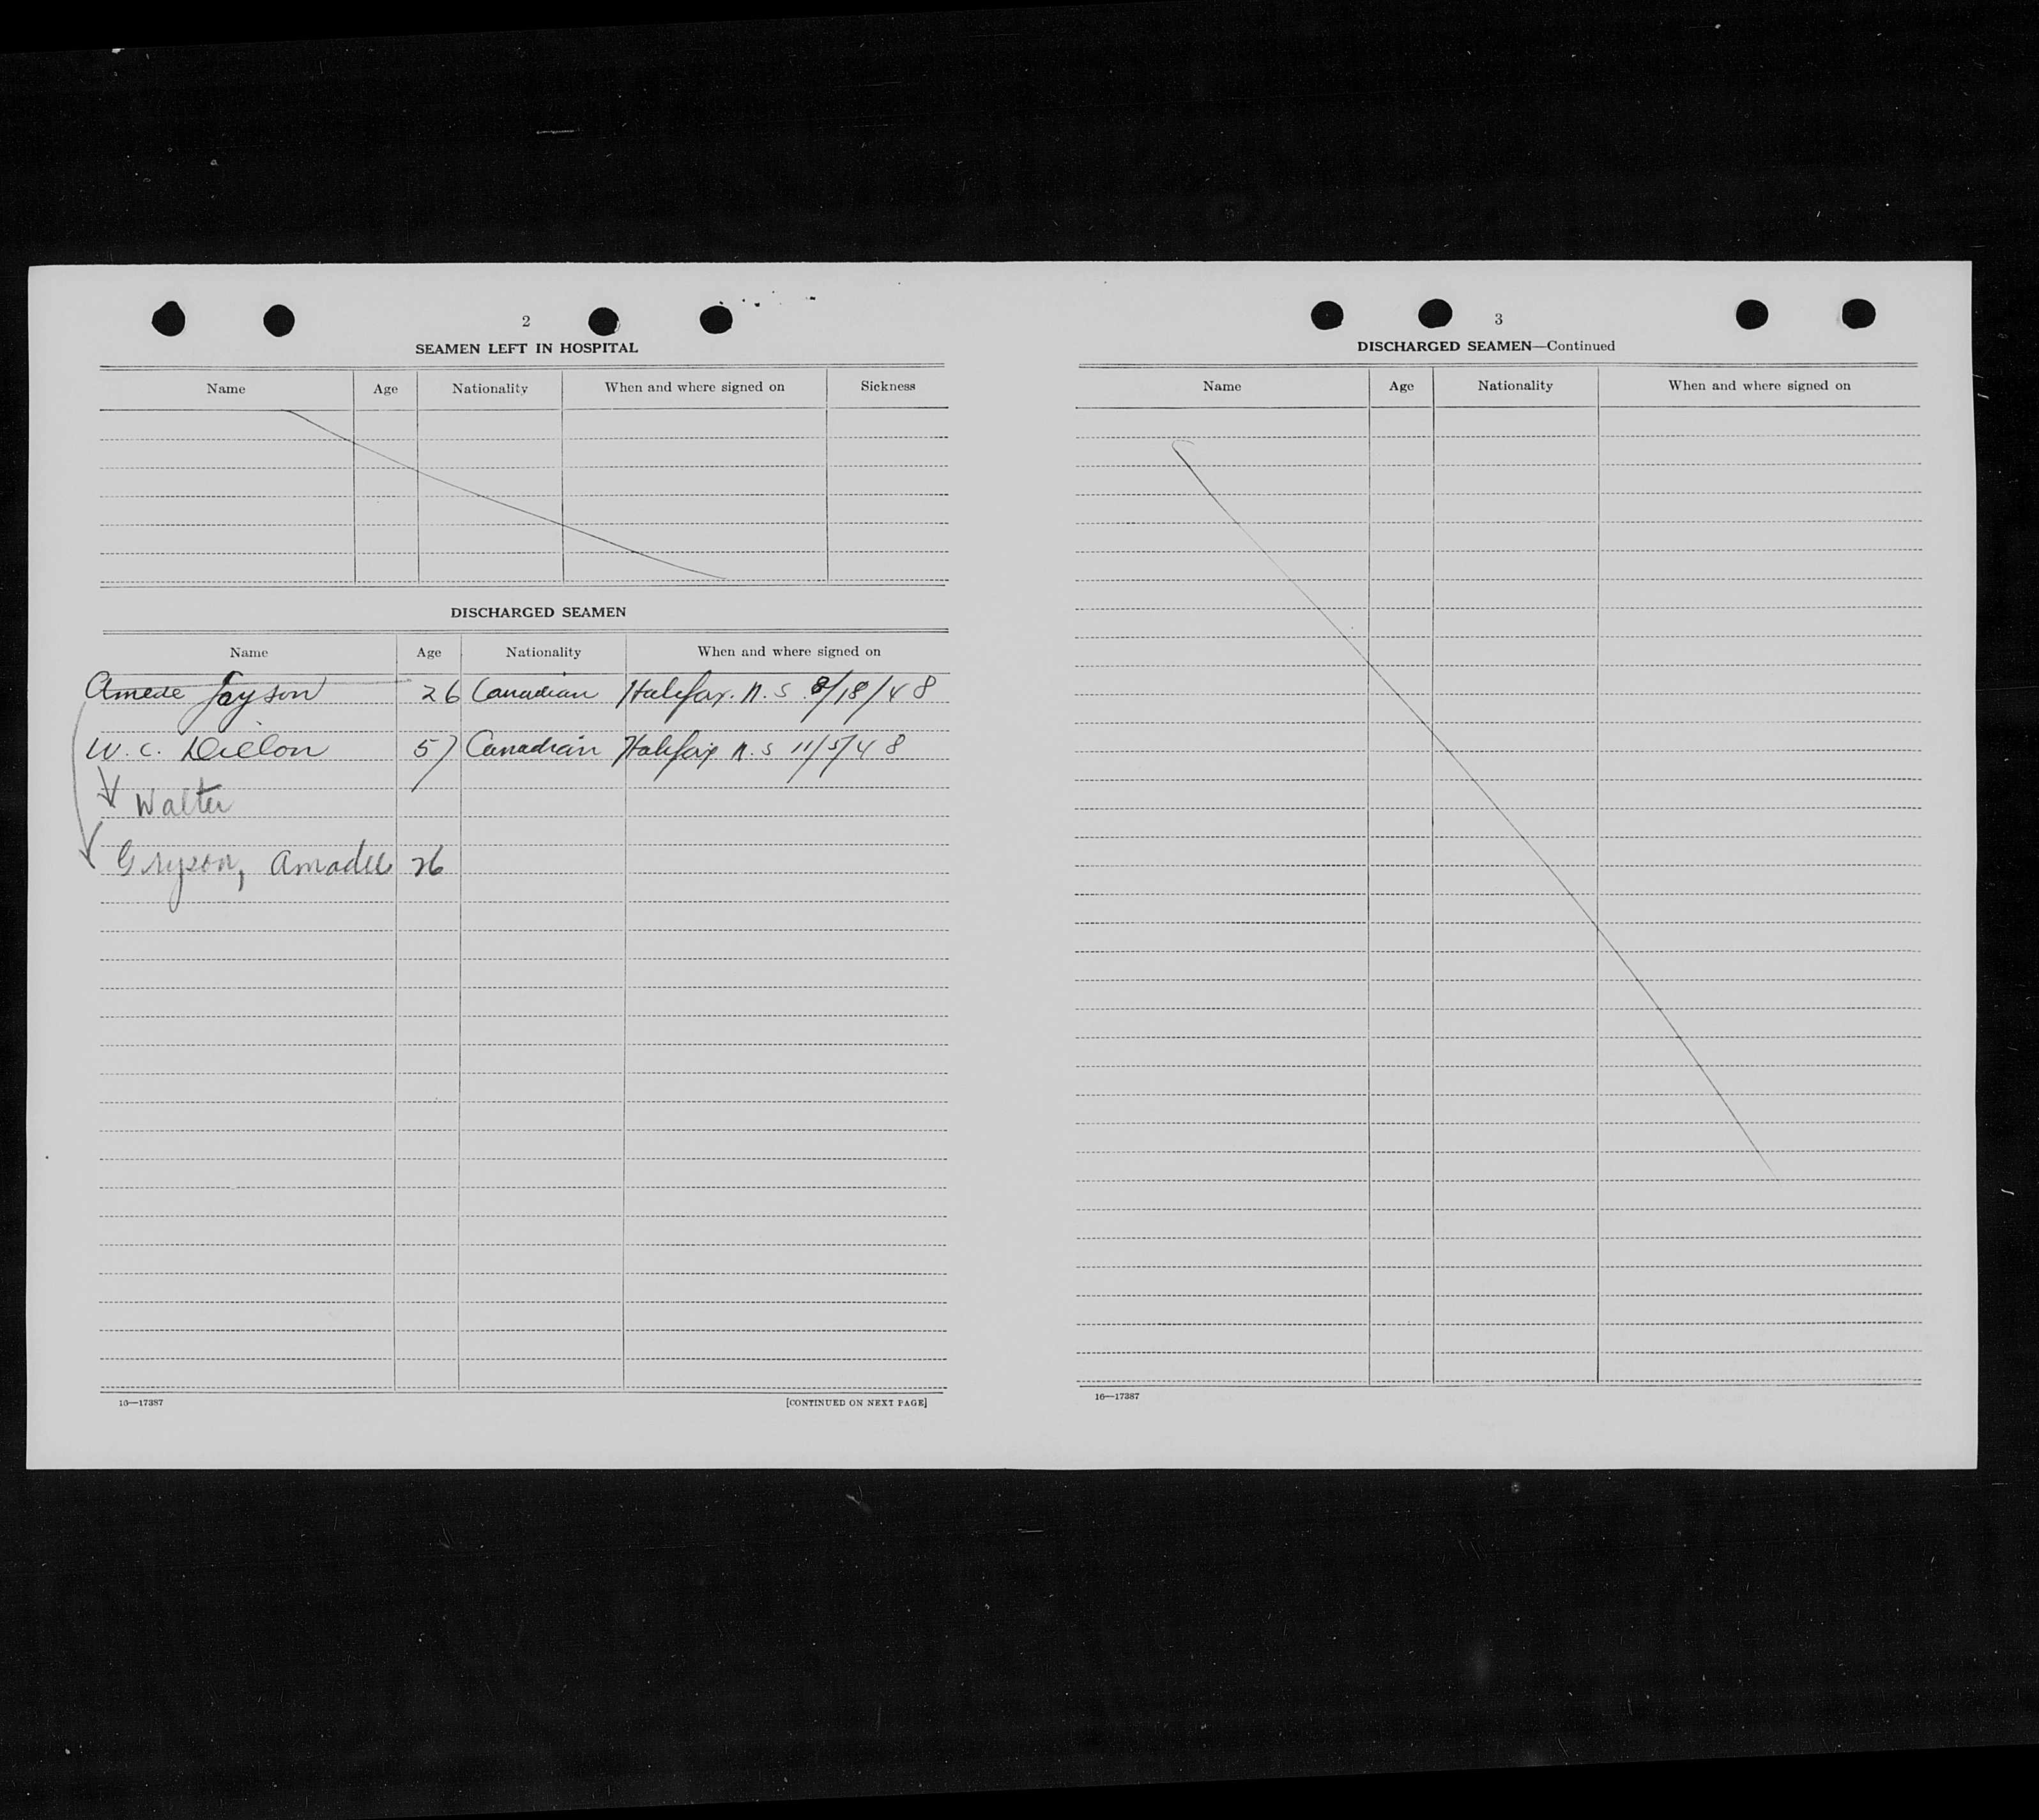 2
SEAMEN LEFT IN HOSPITAL
Name Age Nationality When and where signed on Sickness
DISCHARGED SEAMEN
Name Age Nationality When and where signed on
Amede Jayson 26 Canadian Halifax. N. S 8/18/48
W. C. Dillon 57 Canadian Halifax N. S 11/5/48
Walter
Gryson, Amadee 26
16—17387 [CONTINUED ON NEXT PAGE]
3
DISCHARGED SEAMEN—Continued
Name Age Nationality When and where signed on
16—17387